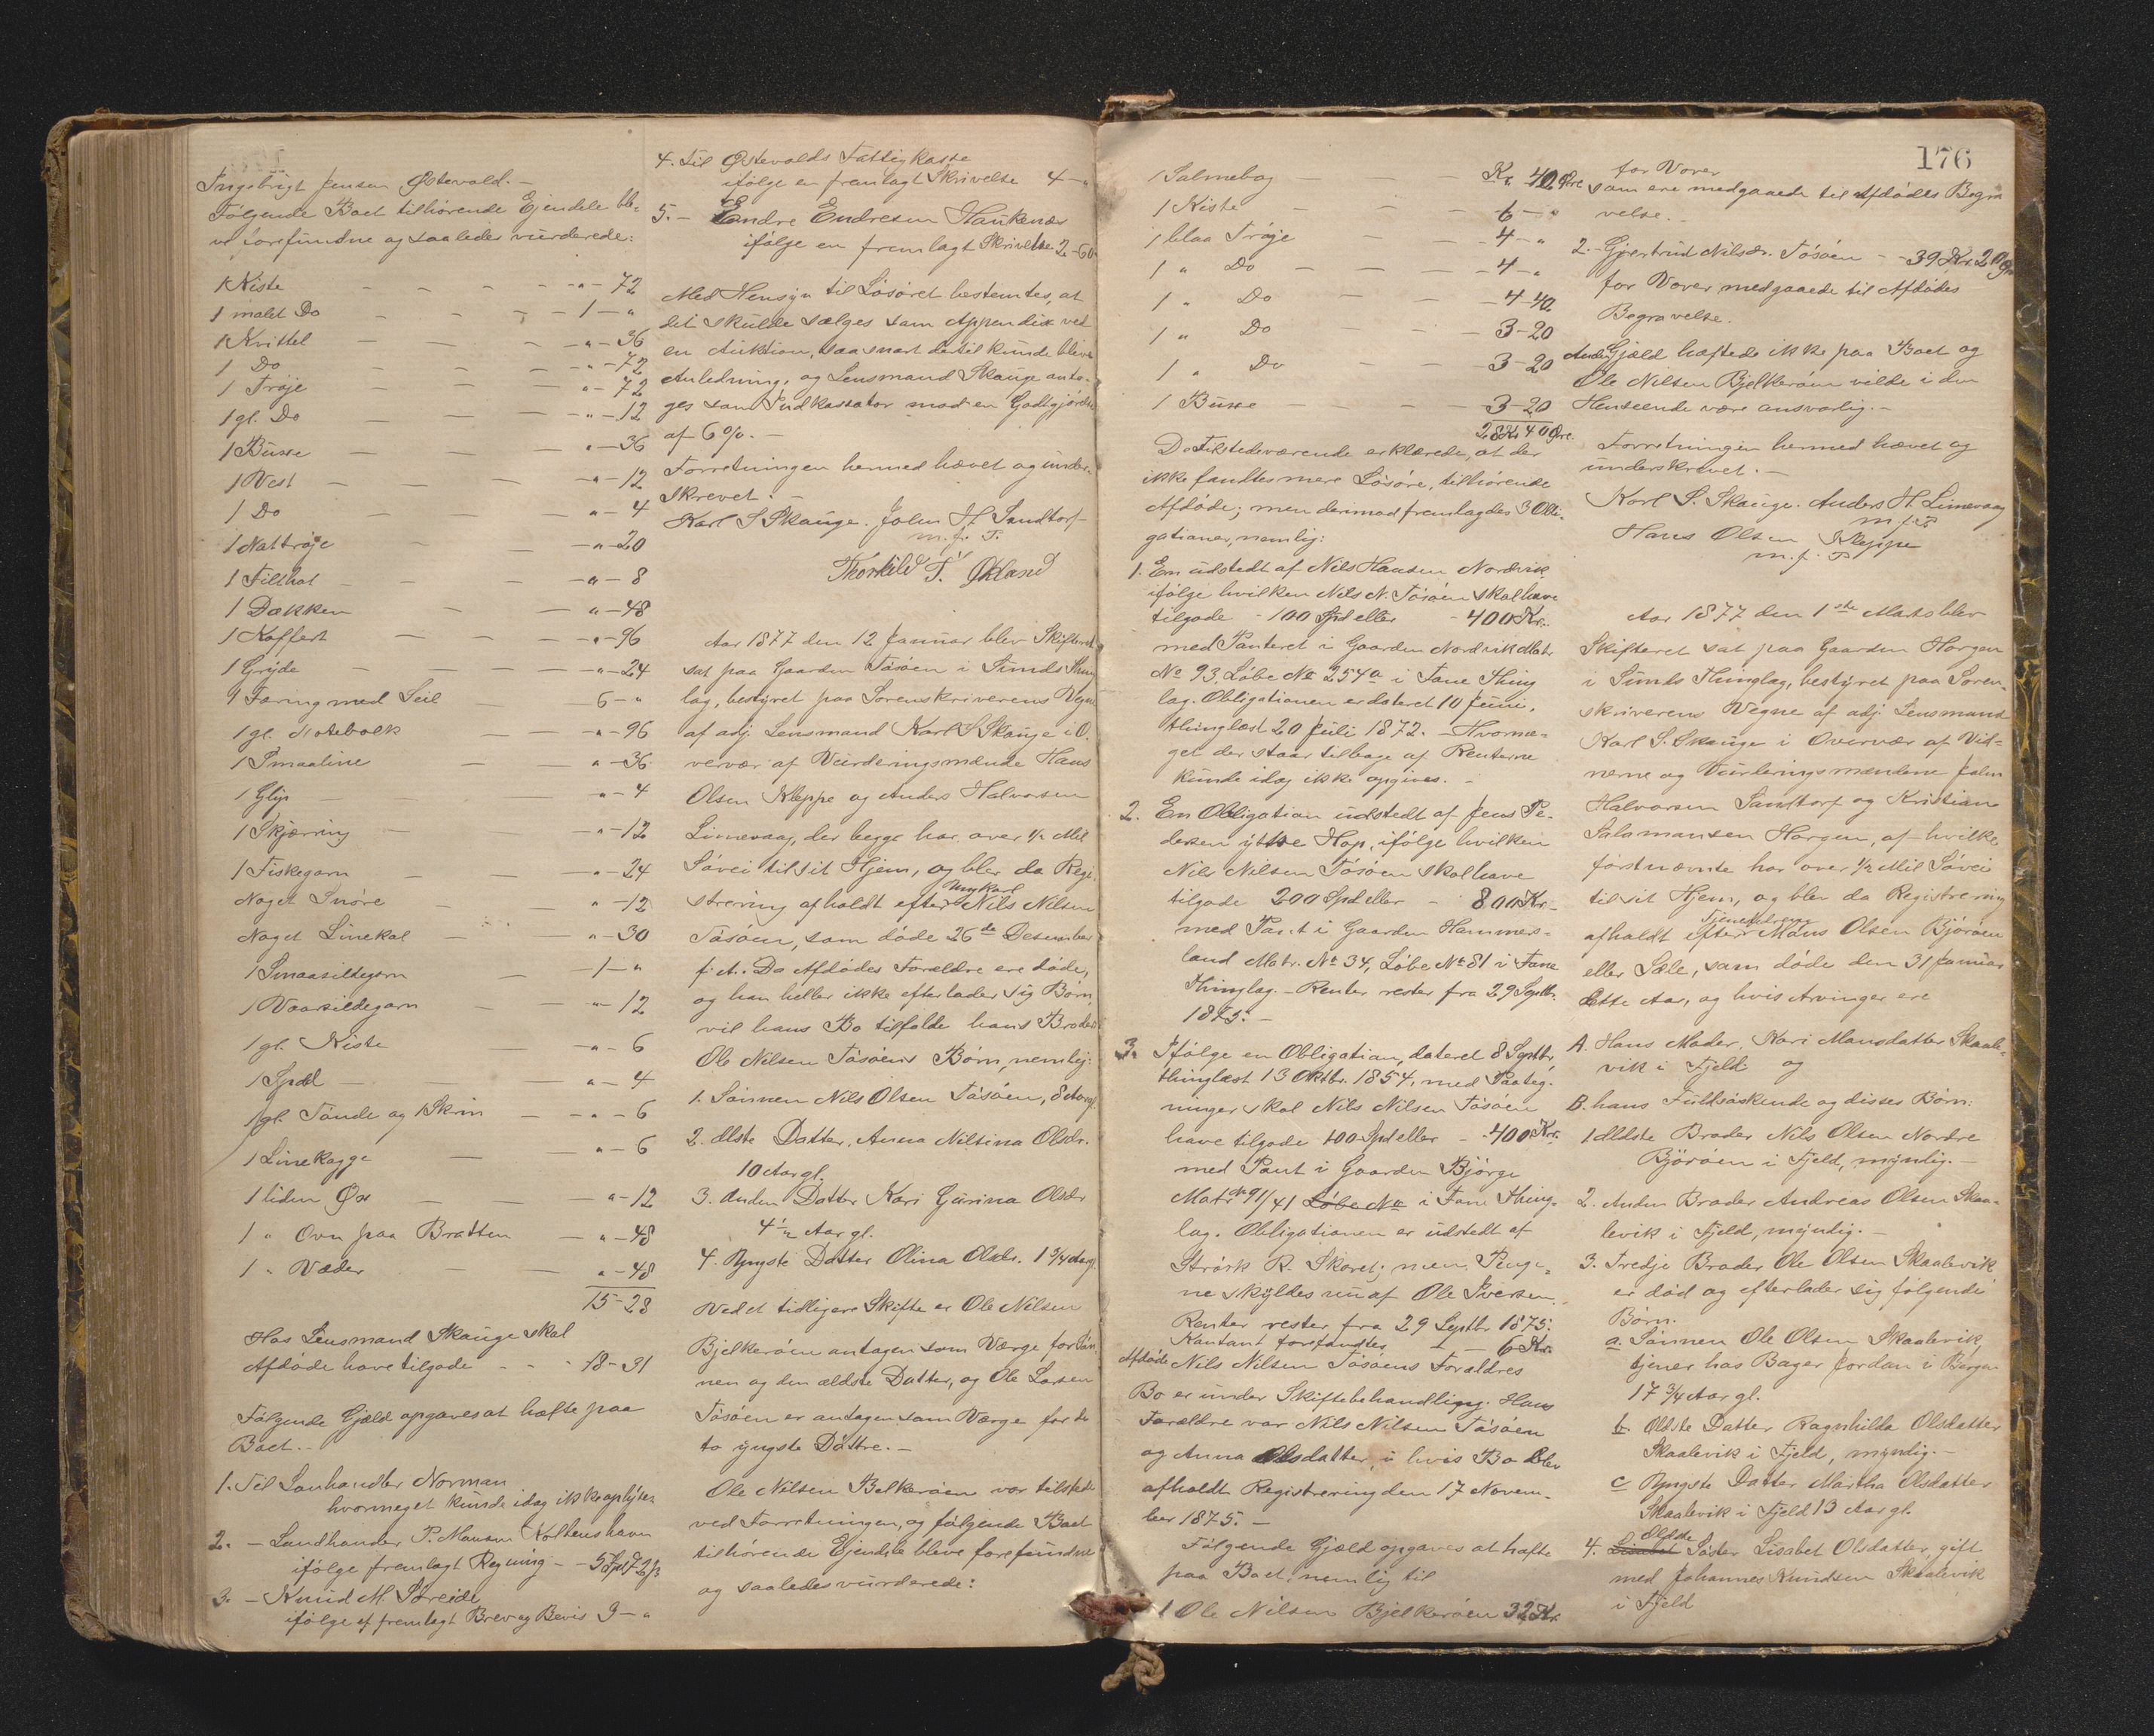 Ingebrigt Jensen Østevold. -
Følgende Boet tilhørende Ejendele ble-
ve forefundne og saaledes vurderede:
1 Kiste - - - - - " - 72
1 malet Do - - - - 1 - "
1 Kvittel - - - - " - 36
1 Do - - - - " - 72
1 Trøje - - - " - 72
1 gl. Do - - - " - 12
1 Buxe - - - " - 36
1 Vest - - - - " - 12
1 Do - - - " - 4
1 Nattrøje - - - " - 20
1 Filthat - - - " - 8
1 Dækken - - " - 48
1 Koffert - - - - " - 96
1 Gryde - - - - " - 24
1 Færing med Seil - - 6 - "
1 gl. Notebolk - - " - 96
1 Smaaline - - " - 36
1 Glip - - " - 4
1 Skjæring - - " - 12
1 Fiskegarn - - " - 24
Noget Snøre - - " - 12
Noget Linekal - - " - 30
1 Smaasildegarn - 1 - "
1 Vaarsildegarn - - " - 12
1 gl. Kiste - - " - 6
1 Spæl - - " - 4
1 gl. Tønde og 1 Skrin - - " - 6
1 Linekagge - - " - 6
1 liden Øx - - " - 12
1 " Ovn paa Bratten - " - 48
1 " Væder - - " - 48
15 - 28
Hos Lensmand Skauge skal
Afdøde have tilgode - - - 18 - 31
Følgende Gjæld opgaves at hæfte paa
Boet. -
1. Til Landhandler Norman
hvormeget kunde idag ikke oplyses
2. - Landhandler P. Mansen Koltenshavn
ifølge fremlagt Regning - - 5 Spd 72 ß
3. - Knud M. Søreide
ifølge et fremlagt Brev og Bevis 3 - "
4. Til Østevolds Fattigkasse
ifølge en fremlagt Skrivelse 4 - "
5. - Endre Endresen Haukenæs
ifølge en fremlagt Skrivelse 2 - 60
Med Hensyn til Løsøret bestemtes, at
det skulde sælges som Appendix ved
en Auktion, saa snart dertil kunde blive
Anledning, og Lensmand Skauge anto-
ges som Indkassator mod en Godtgjørelse
af 6%. -
Forretningen hermed hævet og under-
skrevet. -
Karl S Skauge. John H. Sandtorf
m. f. P.
Thorkild T. Økland
Aar 1877 den 12 Januar blev Skifteret
sat paa Gaarden Tøsøen i Sunds Thing
lag, bestyret paa Sorenskriverens Vegne
af adj. Lensmand Karl S Skauge i O-
vervær af Vurderingsmændene Hans
Olsen Kleppe og Anders Halvorsen
Linnevaag, der begge har over ½ Mil
Søvei til sit Hjem, og blev da Regi-
strering afholdt efter Ungkarl Nils Nilsen
Tøsøen, som døde 26de Desember
f. A. Da Afdødes Forældre ere døde,
og han heller ikke efterlader sig Børn,
vil hans Bo tilfalde hans Broder
Ole Nilsen Tøsøens Børn, nemlig:
1. Sønnen Nils Olsen Tøsøen, 8 Aar gl.
2. Ælste Datter, Anna Nilsina Olsdr.
10 Aar gl.
3. Anden Datter Kari Gurina Olsdr
4½ Aar gl.
4. Yngste Datter Olina Olsdr. 1 3/4 Aar gl.
Ved et tidligere Skifte er Ole Nilsen
Bjelkerøen antagen som Værge for Søn-
nen og den ældste Datter, og Ole Larsen
Tøsøen er antagen som Værge for de
to yngste Døttre. -
Ole Nilsen Bjelkerøen var tilstede
ved Forretningen, og følgende Boet
tilhørende Ejendele bleve forefundne
og saaledes vurderede:
176
1 Salmebog - - - Kr. " 40 Øre
1 Kiste - - - 6 - "
1 blaa Trøje - - - 4 - "
1 " Do - - - - 4 - "
1 " Do - - - 4 - 40
1 " Do - - - 3 - 20
1 " Do - - - 3 - 20
1 Buxe - - - 3 - 20
28 Kr 40 Øre.
De Tilstedeværende erklærede, at der
ikke fandtes mere Løsøre, tilhørende
Afdøde; men derimod fremlagdes 3 Obli-
gationer, nemlig:
1. En udstedt af Nils Hansen Nordvik
ifølge hvilken Nils N. Tøsøen skal have
tilgode - 100 Spd eller - 400 Kr.
med Panteret i Gaarden Nordvik Matr.
No 93, Løbe No 254a i Fane Thing
lag. Obligationen er dateret 10 Juni,
thinglæst 20 Juli 1872. - Hvorme-
get der staar tilbage af Renterne
kunde idag ikke opgives. -
2. En Obligation udstedt af Jens Pe-
dersen ytre Hop, ifølge hvilken
Nils Nilsen Tøsøen skal have
tilgode 200 Spd eller - 800 Kr. -
med Pant i Gaarden Hammers-
land Matr. No 34, Løbe No 81 i Fane
Thinglag. - Renter rester fra 29 Septbr.
1875. -
3. Ifølge en Obligation, dateret 8 Septbr.
thinglæst 13 Oktbr. 1854, med Paateg-
ninger skal Nils Nilsen Tøsøen
have tilgode 100 Spd eller - 400 Kr.
med Pant i Gaarden Bjørge
Matr No 91/41 Løbe No i Fane Thing-
lag. Obligationen er udstedt af
Størk R. Skaret; men Penge-
ne skyldes nu af Ole Iversen.
Renter rester fra 29 Septbr 1875.
Kontant forefandtes - - 6 Kr.
Afdøde Nils Nilsen Tøsøens Forældres
Bo er under Skiftebehandling. Hans
Forældre var Nils Nilsen Tøsøen
og Anna Olsdatter, i hvis Bo blev
afholdt Registrering den 17 Novem-
ber 1875. -
Følgende Gjæld opgaves at hæfte
paa Boet, nemlig til
1 Ole Nilsen Bjelkerøen 32 Kr.
for Varer
som ere medgaaede til Afdødes Begra
velse. -
2. Gjertrud Nilsdr. Tøsøen - - 39 Kr. 20 Øre
for Varer medgaaede til Afdødes
Begravelse.
Anden Gjæld hæftede ikke paa Boet og
Ole Nilsen Bjelkerøen vilde i den
Henseende være ansvarlig. -
Forretningen hermed hævet og
underskrevet. -
Karl S. Skauge. Anders H. Linnevaag
m. f. P.
Hans Olsen Kleppe
m. f. P
Aar 1877 den 1ste Marts blev
Skifteret sat paa Gaarden Horgen
i Sunds Thinglag, bestyret paa Soren-
skriverens Vegne af adj. Lensmand
Karl S. Skauge i Overvær af Vid-
nerne og Vurderingsmændene John
Halvorsen Sandtorf og Kristian
Salamonsen Horgen, af hvilke
førstnævnte har over ½ Mil Søvei
til sit Hjem, og blev da Registrering
afholdt efter Tjenestdreng Måns Olsen Bjørøen
eller Sæle, som døde den 31 Januar
dette Aar, og hvis Arvinger ere
A. Hans Moder, Kari Monsdatter Skaale-
vik i Fjeld og
B. hans Fuldsøskende og disses Børn:
1 Ældste Broder Nils Olsen Nordre
Bjørøen i Fjeld, myndig. -
2. Anden Broder Andreas Olsen Skaa-
levik i Fjeld, myndig. -
3. Tredje Broder Ole Olsen Skaalevik
er død og efterlader sig følgende
Børn.
a. Sønnen Ole Olsen Skaalevik,
tjener hos Bager Jordan i Bergen
17 3/4 Aar gl.
b. Ældste Datter Ragnhilda Olsdatter
Skaalevik i Fjeld, myndig. -
c Yngste Datter Martha Olsdatter
Skaalevik i Fjeld 13 Aar gl.
4. Lisabet Ældste Søster Lisabet Olsdatter, gift
med Johannes Knudsen Skaalevik
i Fjeld